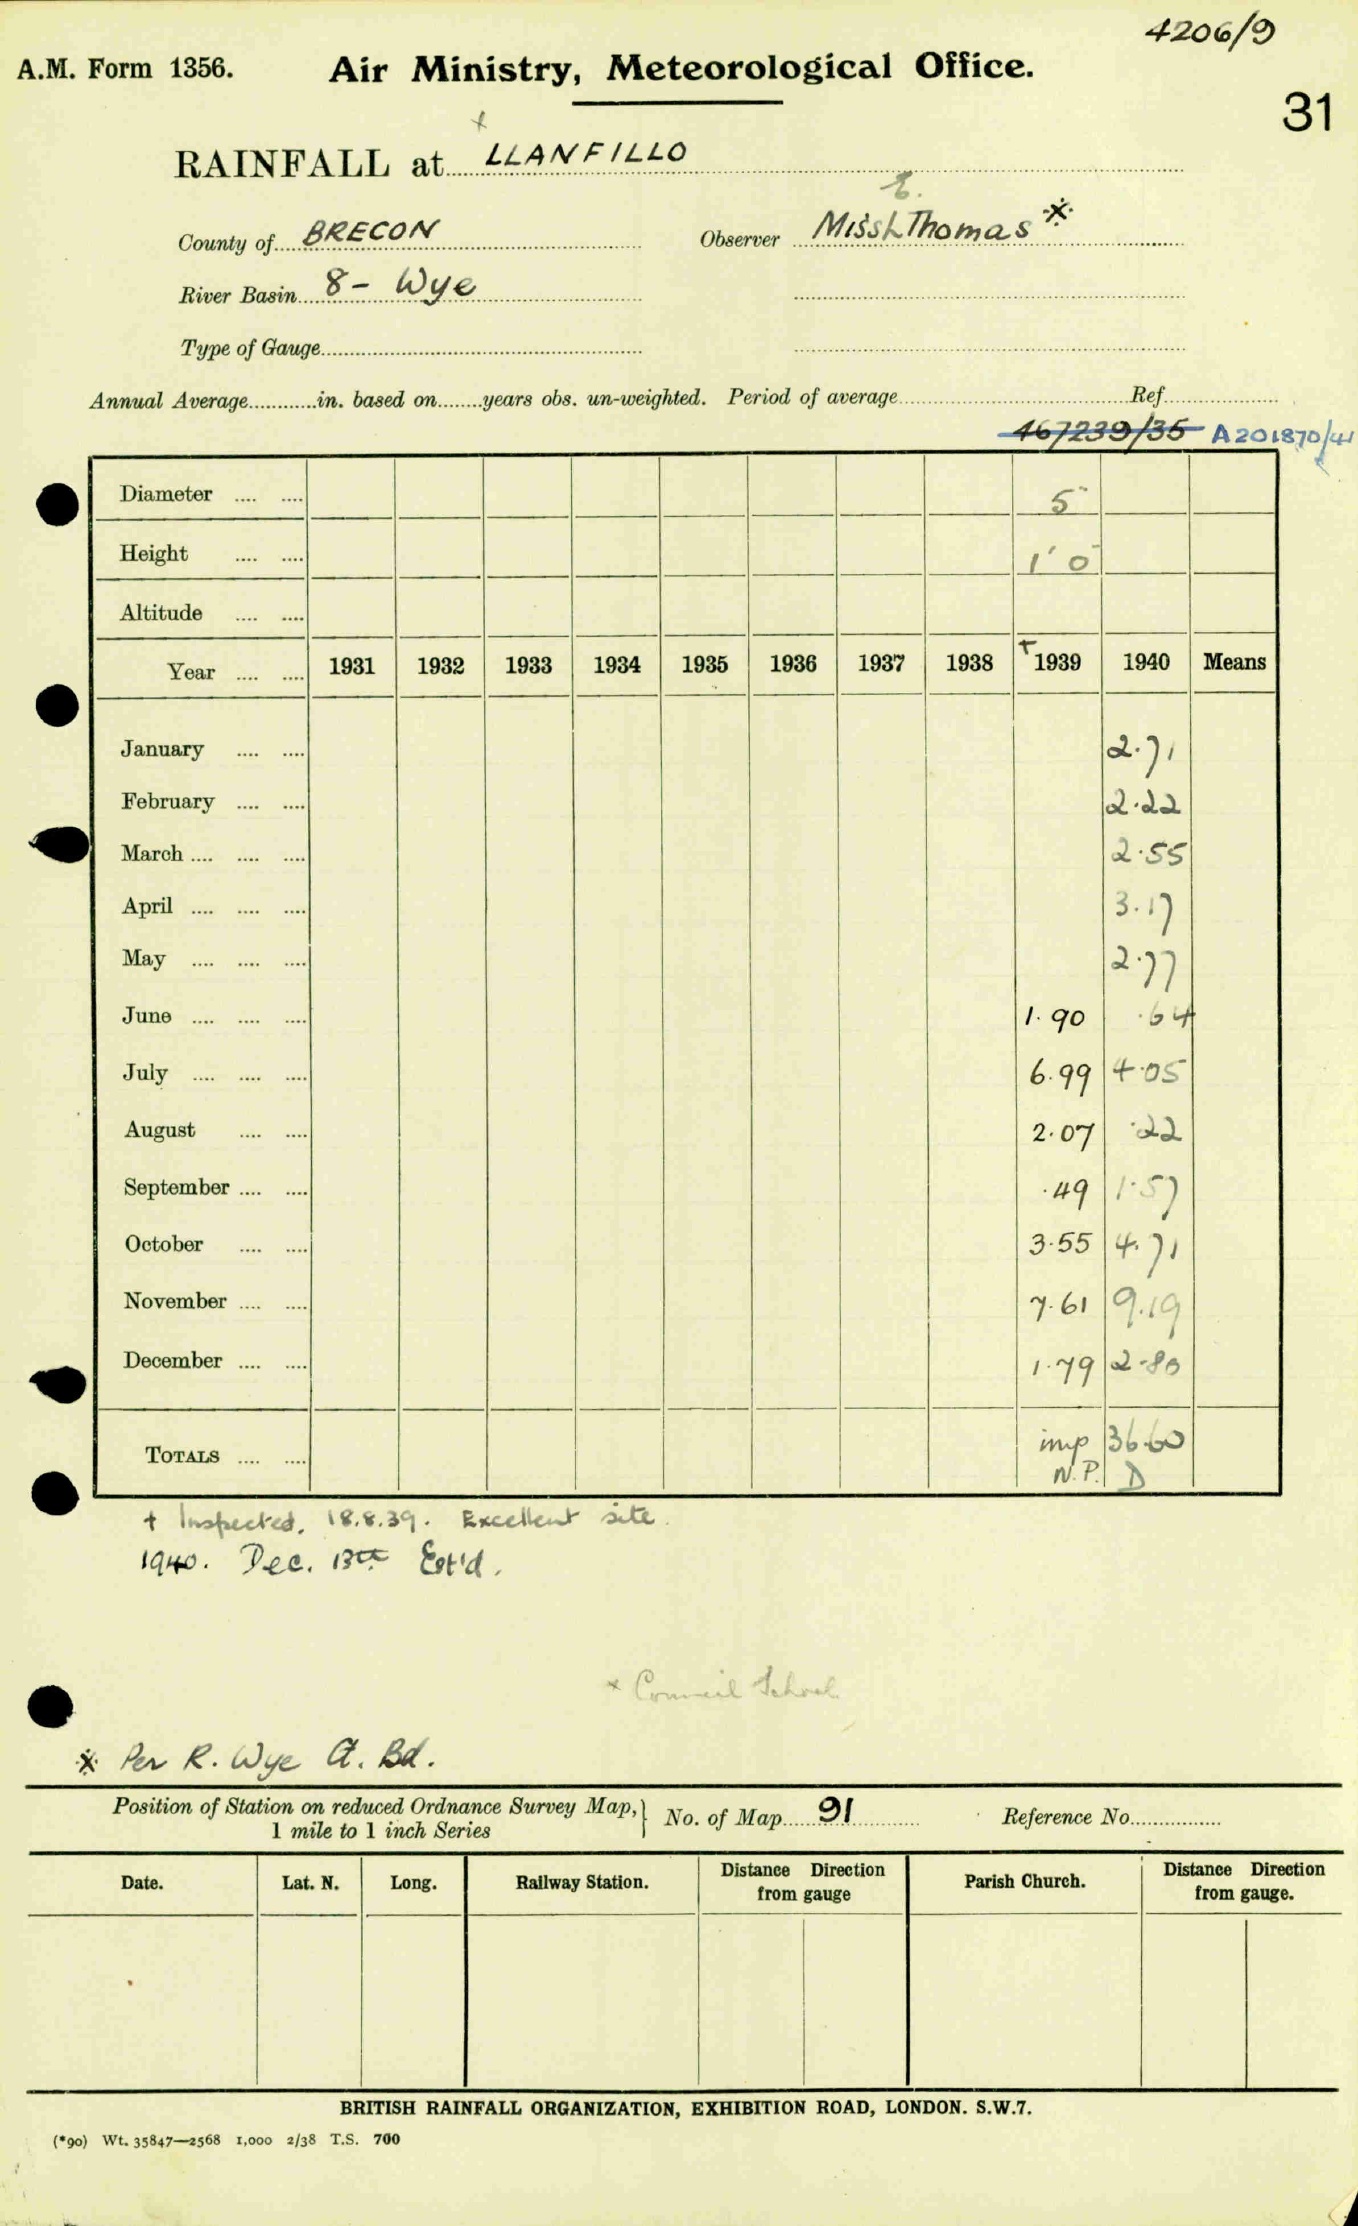 4206/9
A.M. Form 1356. Air Ministry, Meteorological Office.
31
RAINFALL at + LLANFILLO
E.
County of BRECON Observer Miss L Thomas *
River Basin 8 - Wye
Type of Gauge
Annual Average in. based on years obs. un-weighted. Period of average Ref.
467239/35 A201870/41
Diameter 5"
Height 1' 0"
Altitude
Year 1931 1932 1933 1934 1935 1936 1937 1938 + 1939 1940 Means
January 2.71
February 2.22
March 2.55
April 3.17
May 2.77
June 1.90 .64
July 6.99 4.05
August 2.07 .22
September .49 1.57
October 3.55 4.71
November 7.61 9.19
December 1.79 2.80
TOTALS imp 36.60
N.P. D
+ Inspected. 18.8.39. Excellent site.
1940. Dec. 13th Est'd.
* Council School
* Per R. Wye Ct. Bd.
Position of Station on reduced Ordnance Survey Map, 1 mile to 1 inch Series } No. of Map 91 Reference No.
Date. Lat. N. Long. Railway Station. Distance Direction from gauge Parish Church. Distance Direction from gauge.
BRITISH RAINFALL ORGANIZATION, EXHIBITION ROAD, LONDON. S.W.7.
(*90) Wt. 35847—2568 1,000 2/38 T.S. 700